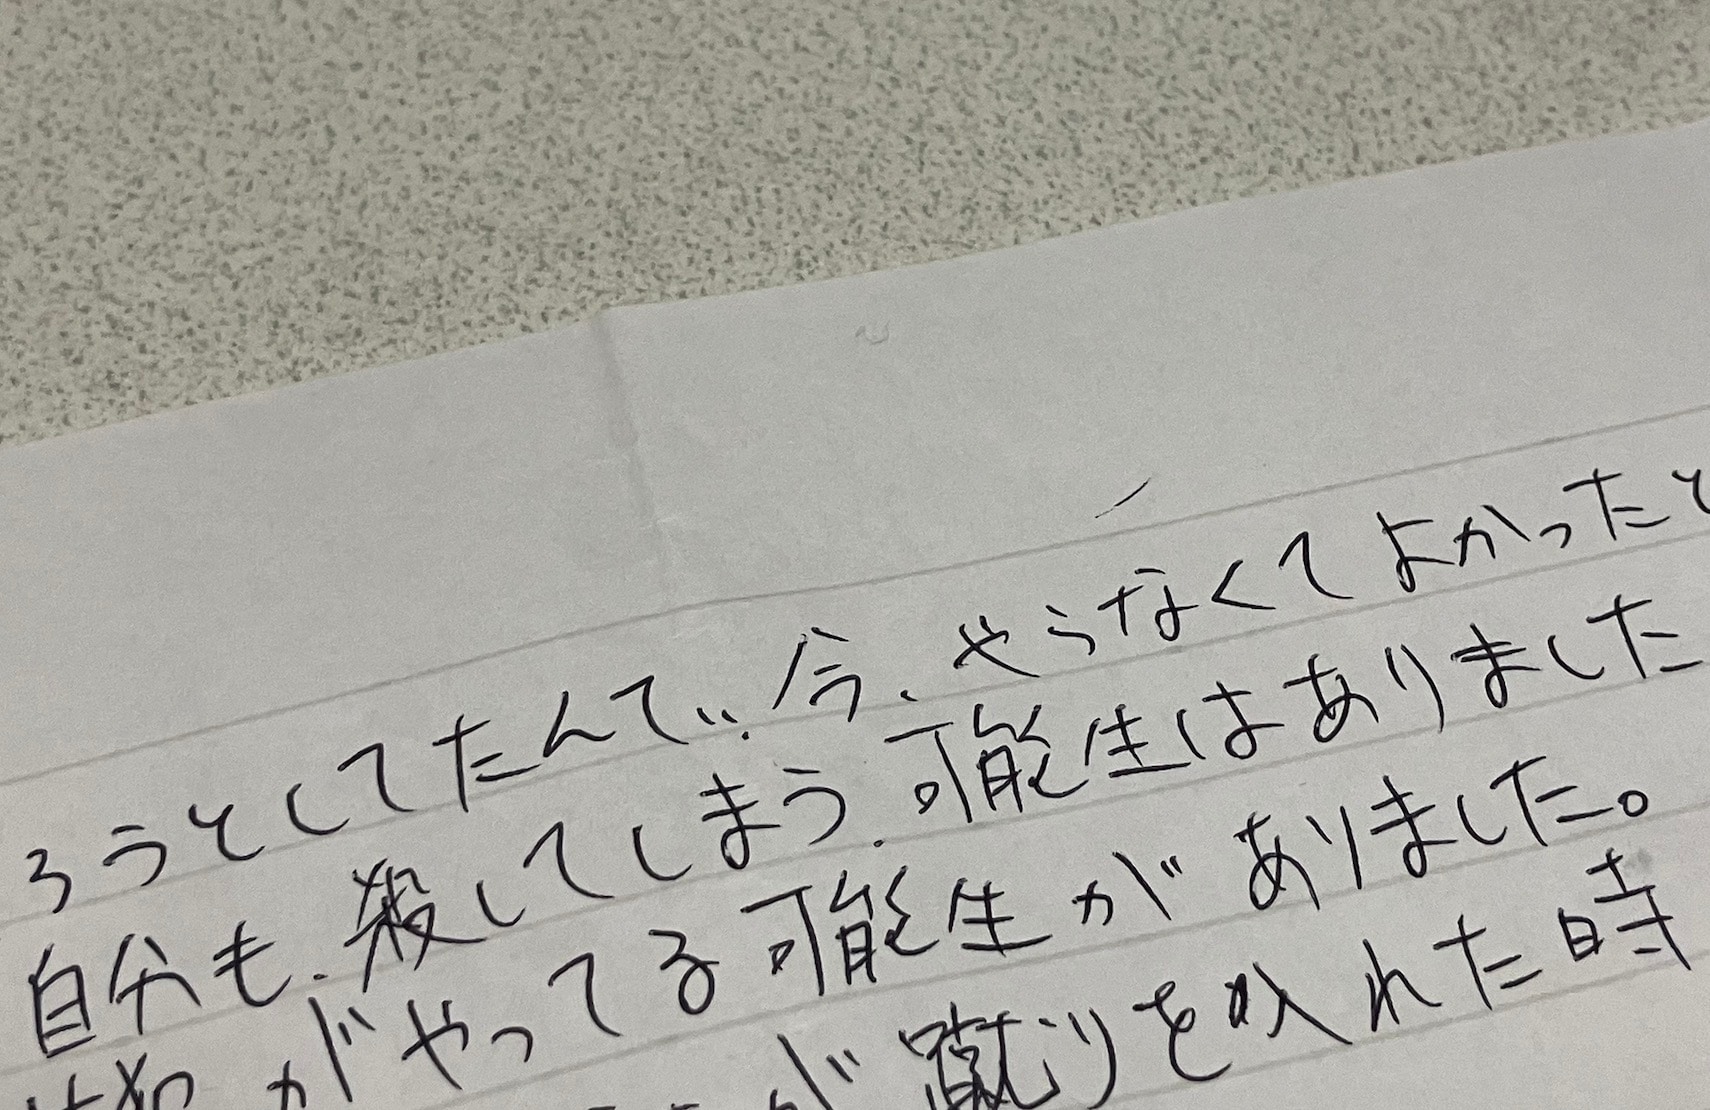 ろうとしてたんで、今、やらなくてよかったと
自分も、殺してしまう、可能生はありました
がやってる可能生がありました。
が蹴りを入れた時